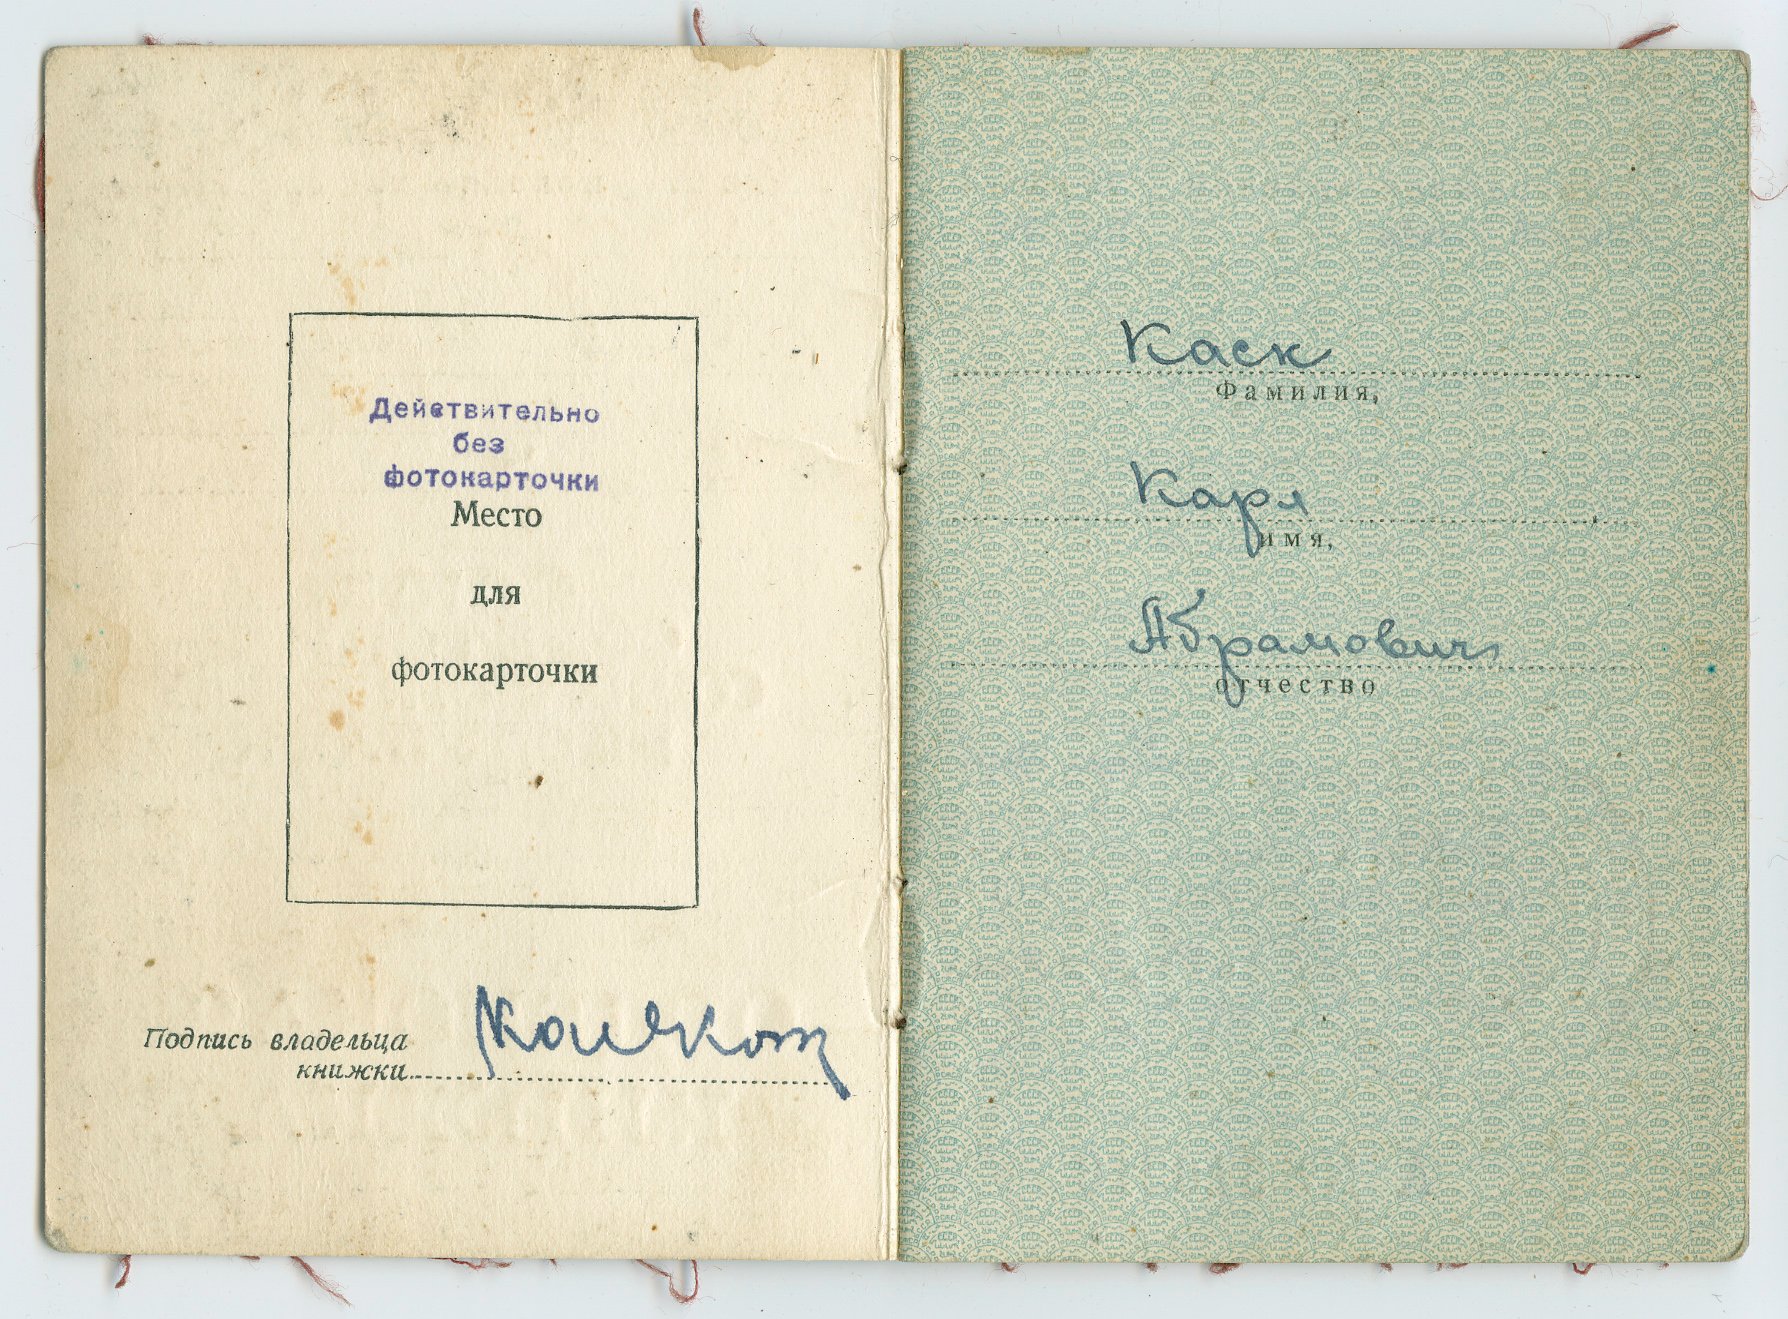 Действительно
без
фотокарточки
Место
для
фотокарточки
Подпись владельца
книжки
Каск
Фамилия,
Карл
имя,
Абрамович
отчество